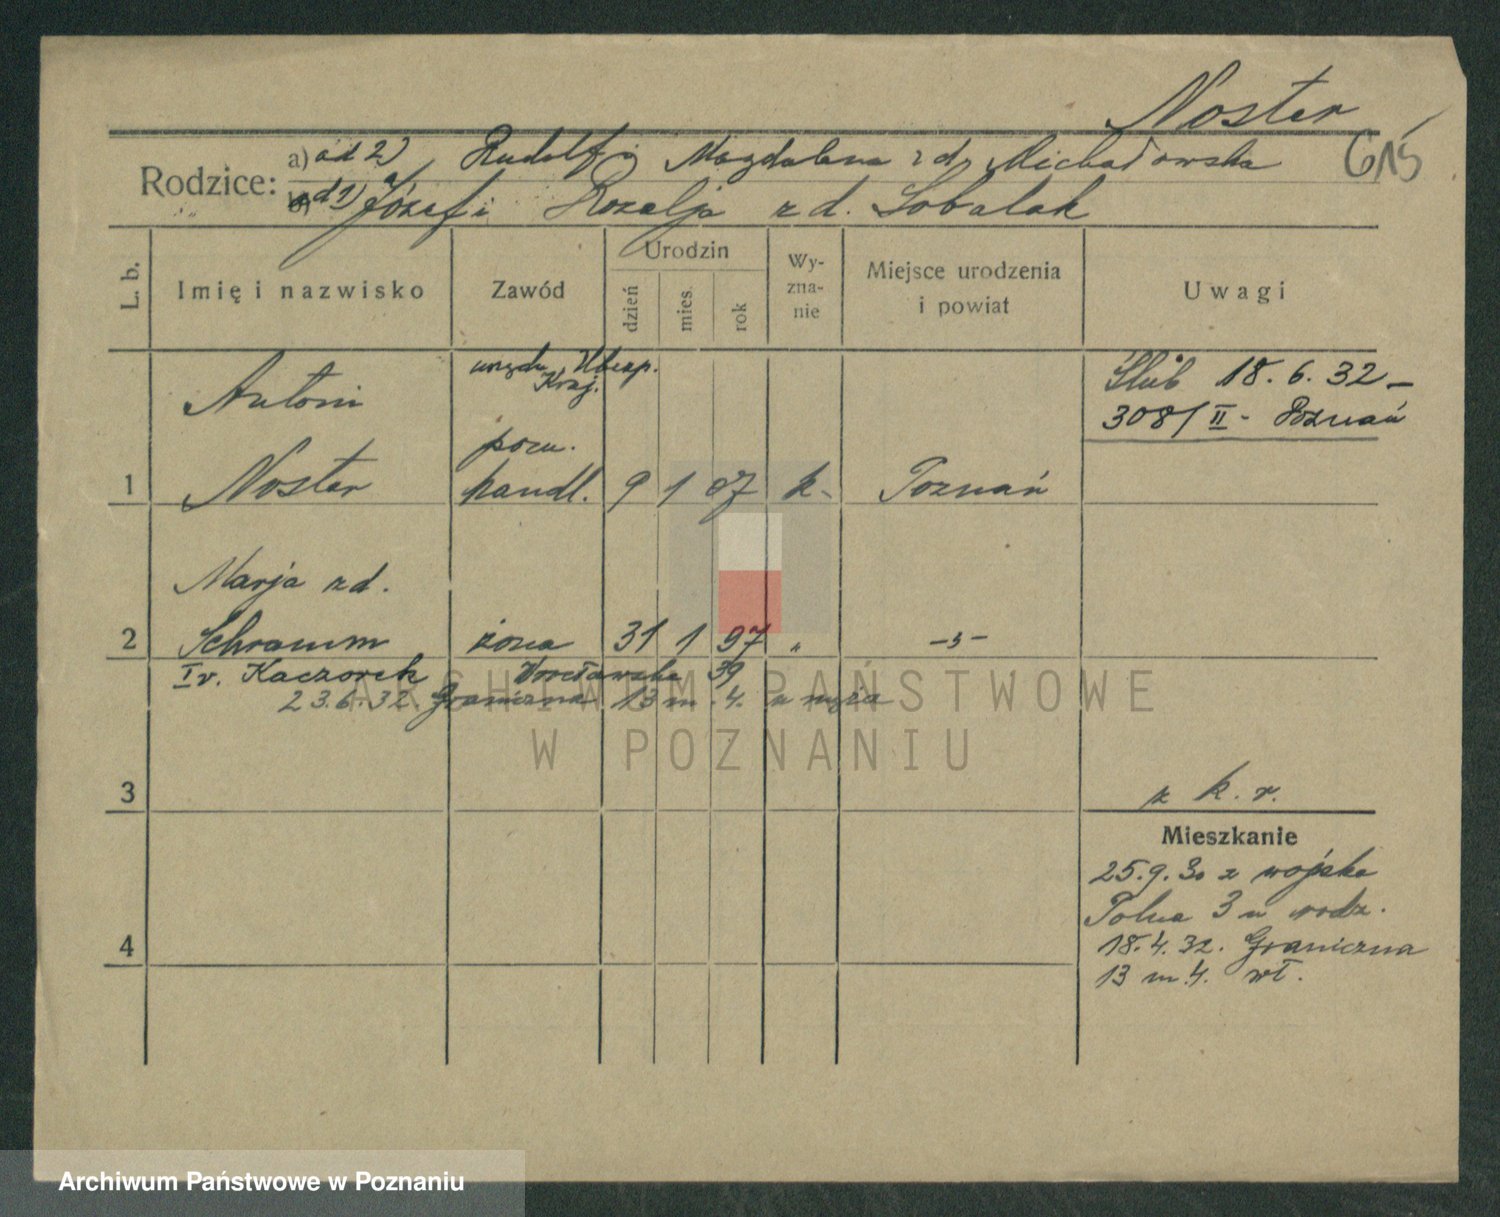 Noster
615
Rodzice: a) ad 2) Rudolf i Magdalena z d. Michałowska
b) ad 1) Józef i Rozalja z d. Sobalak
L. b.
Imię i nazwisko
Zawód
Urodzin
dzień
mies.
rok
Wy-
zna-
nie
Miejsce urodzenia
i powiat
Uwagi
Antoni
urzędn. Ubezp.
Kraj.
Ślub 18. 6. 32 –
308/II - Poznań
pom.
1 Noster handl. 9 1 07 k. Poznań
Marja z d.
2 Schramm żona 31 1 97 " -„-
I v. Kaczorek Wrocławska 39
23.6.32 Graniczna 13 m. 4. u męża
ARCHIWUM PAŃSTWOWE
W POZNANIU
3
z k. r.
Mieszkanie
25.9.30 z wojska
Polna 3 u rodz.
4
18.4.32. Graniczna
13 m. 4. wł.
Archiwum Państwowe w Poznaniu